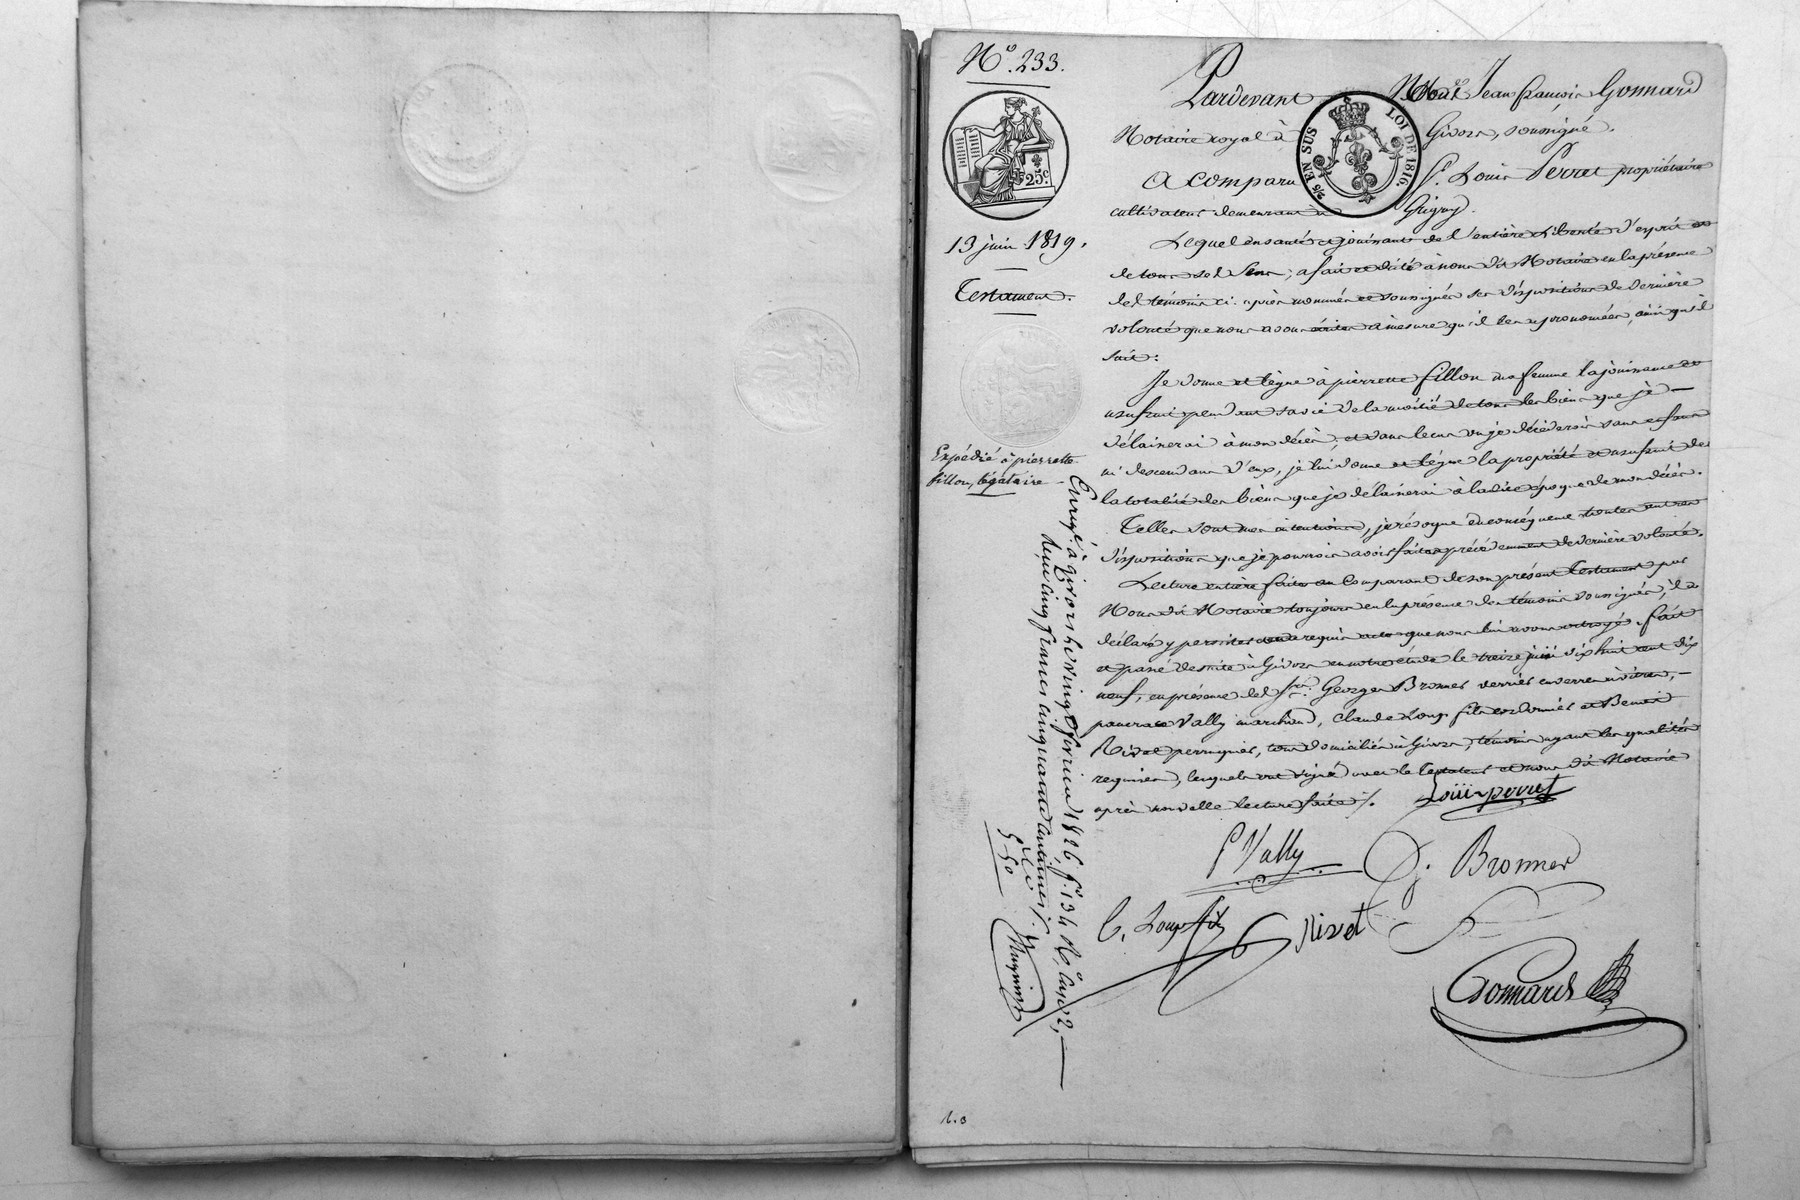 N.° 233.
25 c.
13 juin 1819.
Testament.
Expédié à pierrette
fillon, légataire
Pardevant Nous Jean françois Gonnard
EN SUS LOI DE 1816.
Notaire royal à Givors, soussigné.
A comparu S. Louis Perret propriétaire
cultivateur demeurant à Grigny.
Lequel en santé et jouissant de l'entière liberté d'esprit et
de tous ses sens, a fait et dicté à nous dit Notaire en la présence
des témoins ci-après nommés et soussignés ses dispositions de dernière
volonté que nous avons écrites à mesure qu'il les a prononcées, ainsi qu'il
suit:
Je donne et lègue à pierrette fillon ma femme la jouissance et
usufruit pendant sa vie de la moitié de tous les biens que je
délaisserai à mon décès, et dans le cas où je décéderois sans enfans
ni descendans d'eux, je lui donne et lègue la propriété et usufruit de
la totalité des biens que je delaisserai à ladite époque de mon décès.
Telles sont mes intentions, je révoque en conséquence toutes autres
dispositions que je pourrois avoir faites précédemment de dernière volonté.
Lecture entière faite au Comparant de son présent Testament par
Nous dit Notaire toujours en la présence des témoins soussignés, il a
déclaré y persister et a requis acte que nous lui avons octroyé. fait
et passé de suite à Givors en notre étude le treize juin dix huit cent dix
neuf, en présence des Srs. George Bronner verrier en verre à vitres,
pancrace Vally marchand, Claude Loup fils cordonnier et Benoit
Rivet perruquier, tous domiciliés à Givors, témoins ayant les qualités
requises, lesquels ont signé avec le Testateur et nous dit Notaire
après nouvelle lecture faite ./.
Louis perret
P Vally
G. Bronner
C. Loup fils
Rivet
Gonnard
Enregé. à Givors le vingt février 1826, f° 134 R.° case 2,
reçu cinq francs cinquante centimes
5 50